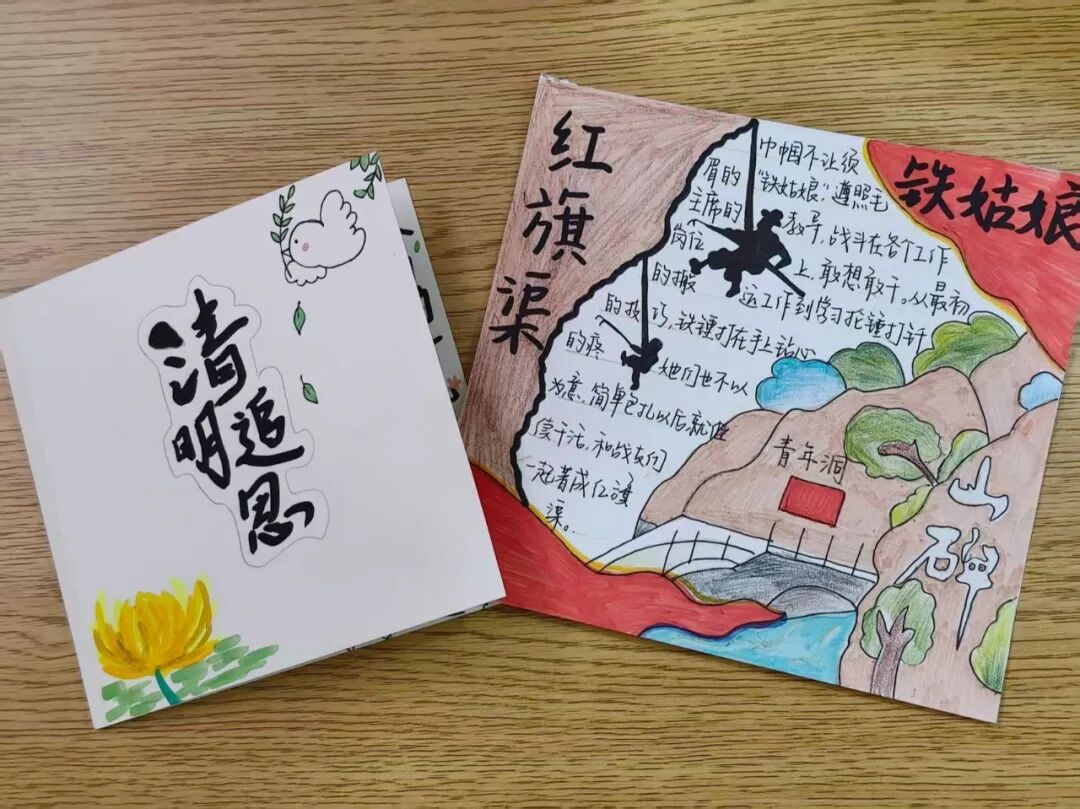 清明追思
红旗渠
铁姑娘
巾帼不让须
眉的“铁姑娘”,遵照毛
主席的教导,战斗在各个工作
岗位上,敢想敢干。从最初
的搬运工作到学习抡锤打钎
的技巧,铁锤打在手上钻心
的疼,她们也不以
为意,简单包扎以后就继
续干活,和战友们
一起着成
渠。
青年洞
山碑